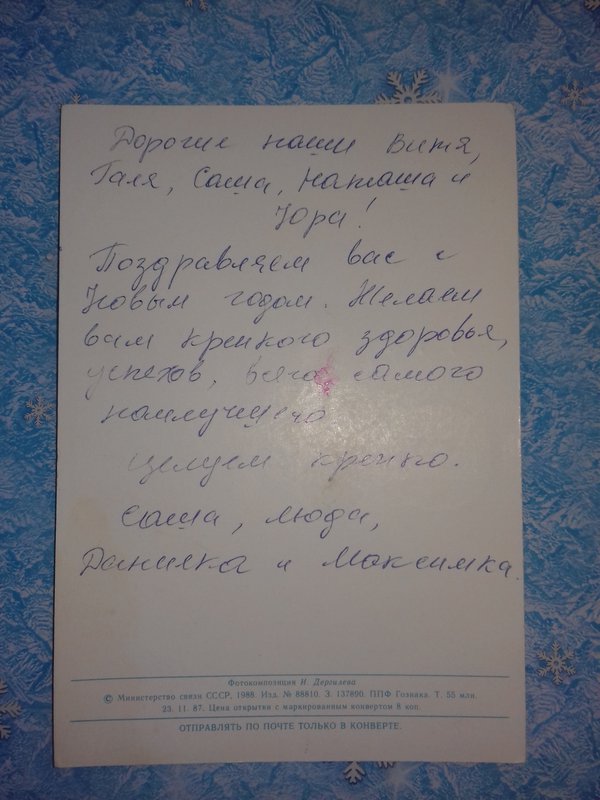 Дорогие наши Витя,
Галя, Саша, Наташа и
Юра!
Поздравляем вас с
Новым годом. Желаем
вам крепкого здоровья,
успехов, всего самого
наилучшего.
Целуем крепко.
Саша, Люда,
Данилка и Максимка.
Фотокомпозиция И. Дергилева
© Министерство связи СССР, 1988. Изд. № 88810. З. 137890. ППФ Гознака. Т. 55 млн.
23. 11. 87. Цена открытки с маркированным конвертом 8 коп.
ОТПРАВЛЯТЬ ПО ПОЧТЕ ТОЛЬКО В КОНВЕРТЕ.